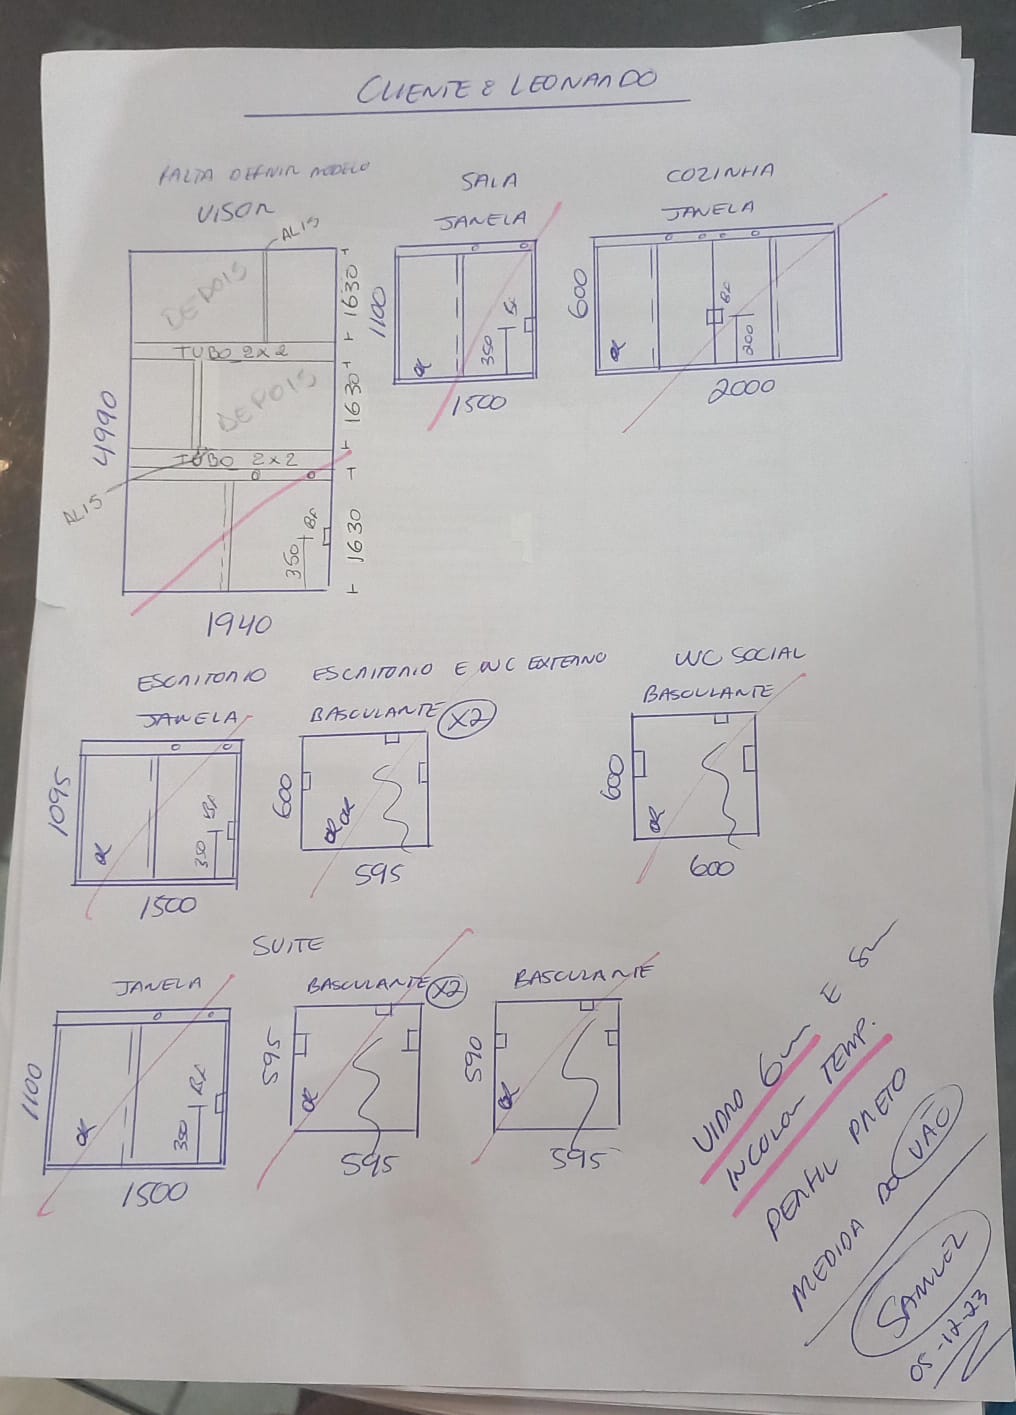 CLIENTE: LEONARDO
FALTA DEFINIR MODELO
VISOR
AL15
DEPOIS
1630
TUBO 2x2
DEPOIS
1630
4990
TUBO 2x2
AL15
350
Bx
1630
1940
SALA
JANELA
1100
350
Bx
OK
1500
COZINHA
JANELA
600
Bx
200
OK
2000
ESCRITORIO
JANELA
1095
OK
350
Bx
1500
ESCRITORIO E WC EXTERNO
BASCULANTE X2
600
OK OK
595
WC SOCIAL
BASCULANTE
600
OK
600
SUITE
JANELA
1100
OK
350
Bx
1500
BASCULANTE X2
595
OK
595
BASCULANTE
590
OK
595
VIDRO 6m E 8m
INCOLOR TEMP.
PERFIL PRETO
MEDIDA DO VÃO
SAMUEL
05-12-23